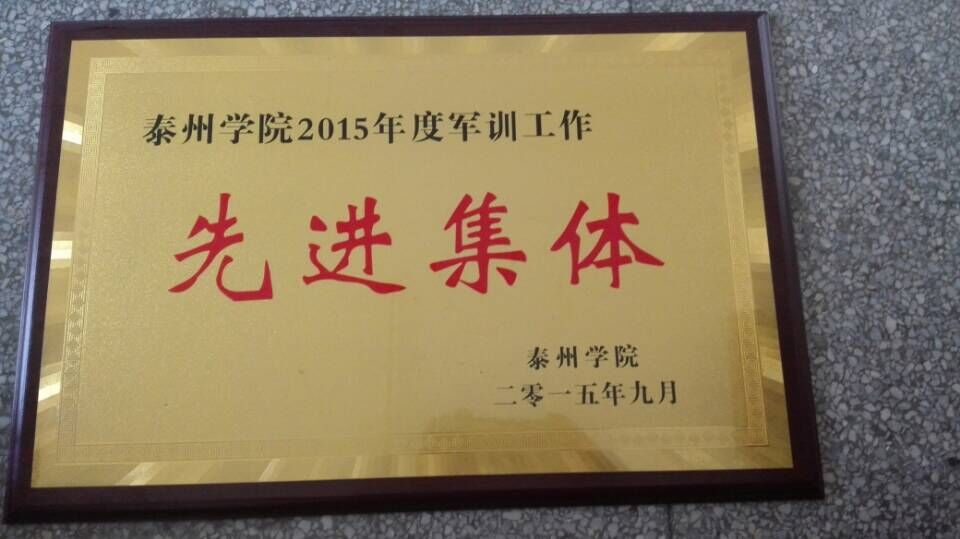 泰州学院2015年度军训工作
先进集体
泰州学院
二零一五年九月